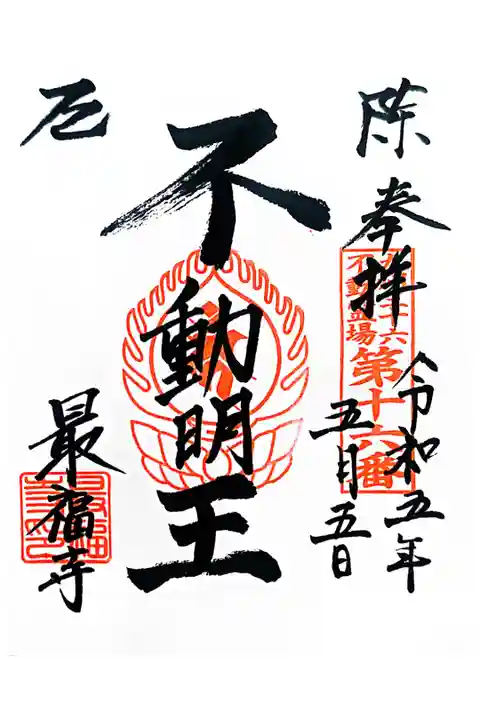 除
厄
奉拝
三十六
不動霊場
第十六番
令和五年
五月五日
不動明王
最福寺